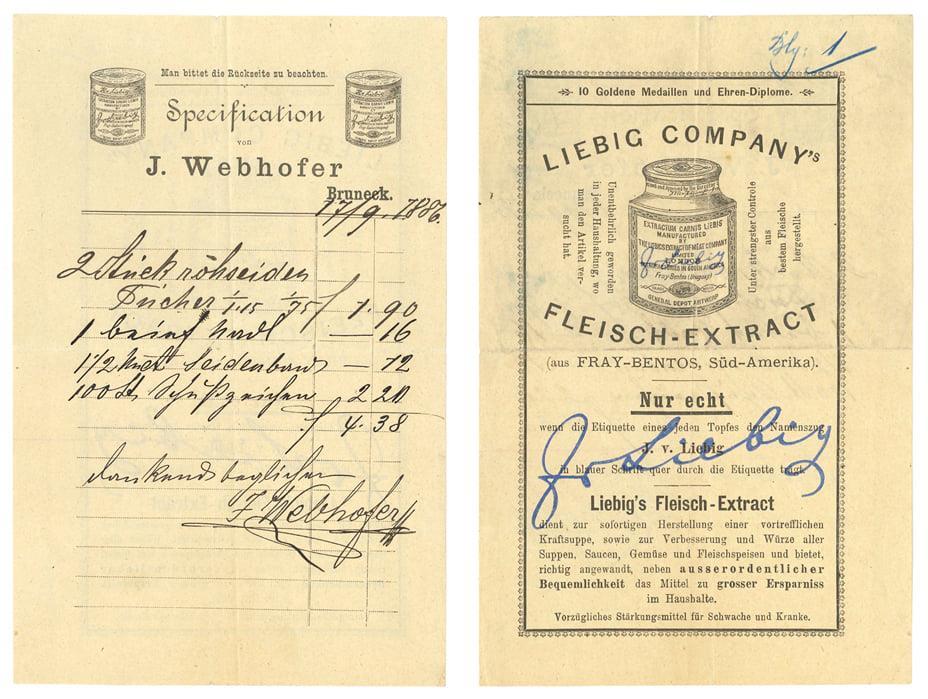 Man bittet die Rückseite zu beachten.
Specification
von
J. Webhofer
Bruneck.
17/9. 1886.
2 Stück rohseiden
Tücher 1/1.15 1/75 f 1. 90
1 — 16
1/2 Seidenband — 12
100 St. Schußzeichen 2 20
f 4. 38
dankend beglichen
J Webhofer
Blg: 1
10 Goldene Medaillen und Ehren-Diplome.
LIEBIG COMPANY's
Unentbehrlich geworden
in jeder Haushaltung, wo
man den Artikel ver-
sucht hat.
EXTRACTUM CARNIS LIEBIG
MANUFACTURED
BY
THE LIEBIG'S EXTRACT OF MEAT COMPANY
LIMITED
Fray-Bentos (Uruguay)
GENERAL DEPOT ANTWERP
Unter strengster Controle
aus
bestem Fleische
hergestellt.
FLEISCH-EXTRACT
(aus FRAY-BENTOS, Süd-Amerika).
Nur echt
wenn die Etiquette eines jeden Topfes den Namenszug
J. v. Liebig
in blauer Schrift quer durch die Etiquette trägt.
J v Liebig
Liebig's Fleisch-Extract
dient zur sofortigen Herstellung einer vortrefflichen
Kraftsuppe, sowie zur Verbesserung und Würze aller
Suppen, Saucen, Gemüse und Fleischspeisen und bietet,
richtig angewandt, neben ausserordentlicher
Bequemlichkeit das Mittel zu grosser Ersparniss
im Haushalte.
Vorzügliches Stärkungsmittel für Schwache und Kranke.